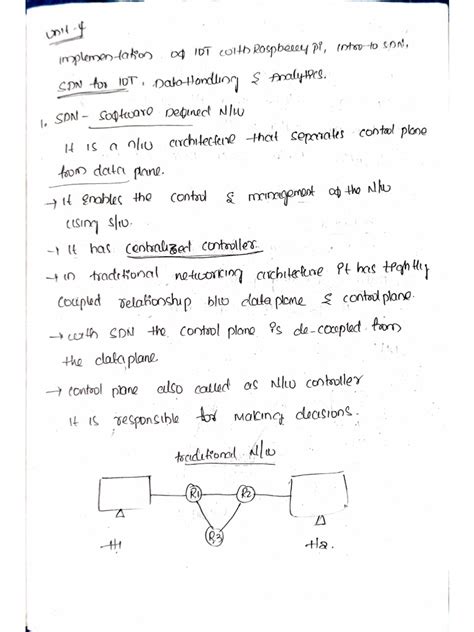 Unit-4
Implementation of IOT with Raspberry Pi, Intro to SDN,
SDN for IOT, Data Handling & Analytics.
1. SDN - Software Defined N/W
It is a n/w architecture that separates control plane
from data plane.
→ It enables the control & management of the N/W
using S/W.
→ It has centralized controller.
→ In traditional networking architecture it has tightly
coupled relationship b/w data plane & control plane.
→ with SDN the control plane is de-coupled from
the data plane
→ control plane also called as N/W controller
It is responsible for making decisions.
traditional N/W
R1 R2
R3
H1 H2.